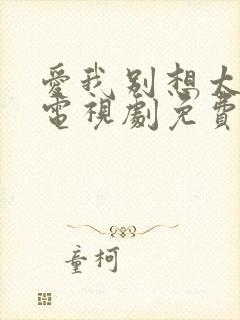 愛我別想太
電視劇免費
童柯